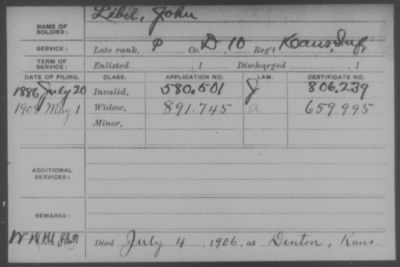 NAME OF SOLDIER: Libel, John
SERVICE: Late rank, P Co. D 10 Reg't Kans Inf.
TERM OF SERVICE: Enlisted , 1 Discharged , 1
DATE OF FILING. CLASS. APPLICATION NO. LAW. CERTIFICATE NO.
1886 July 20 Invalid, 580.501 J 806.239
May 1 Widow, 891.745 a 659.995
Minor,
ADDITIONAL SERVICES:
REMARKS:
Died July 4 1906, at Denton, Kans